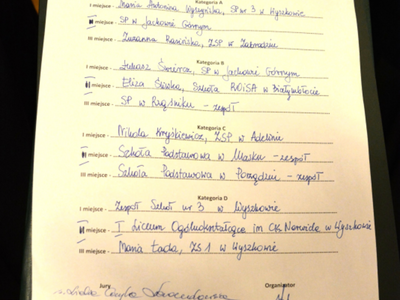 Kategoria A
I miejsce - Maria Antonina Wyszyńska, SP nr 3 w Wyszkowie
II miejsce - SP w Jackowie Górnym
III miejsce - Zuzanna Rasińska, ZSP w Zabrodziu
Kategoria B
I miejsce - Łukasz Świercz, SP w Jackowie Górnym
II miejsce - Eliza Śliwka, Szkoła ROiSA w Białymbłocie
III miejsce - SP w Rząśniku - zespół
Kategoria C
I miejsce - Nikola Kryśkiewicz, ZSP w Adelinie
II miejsce - Szkoła Podstawowa w Mostku - zespół
III miejsce - Szkoła Podstawowa w Porządziu - zespół
Kategoria D
I miejsce - Zespół Szkół nr 3 w Wyszkowie
II miejsce - I Liceum Ogólnokształcące im C.K. Norwida w Wyszkowie
III miejsce - Maria Łada, ZS 1 w Wyszkowie
Jury
Organizator